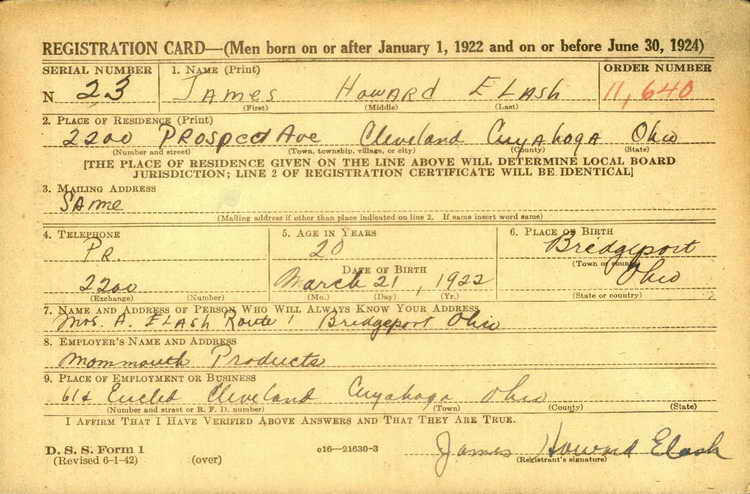 REGISTRATION CARD—(Men born on or after January 1, 1922 and on or before June 30, 1924)
SERIAL NUMBER 1. NAME (Print) ORDER NUMBER
N 23 JAMES HOWARD ELASH 11,640
(First) (Middle) (Last)
2. PLACE OF RESIDENCE (Print)
2200 PROSPECT AVE Cleveland Cuyahoga Ohio
(Number and street) (Town, township, village, or city) (County) (State)
[THE PLACE OF RESIDENCE GIVEN ON THE LINE ABOVE WILL DETERMINE LOCAL BOARD
JURISDICTION; LINE 2 OF REGISTRATION CERTIFICATE WILL BE IDENTICAL]
3. MAILING ADDRESS
SAme
(Mailing address if other than place indicated on line 2. If same insert word same)
4. TELEPHONE 5. AGE IN YEARS 6. PLACE OF BIRTH
PR. 20 Bridgeport
DATE OF BIRTH (Town or county)
2200 March 21, 1922 Ohio
(Exchange) (Number) (Mo.) (Day) (Yr.) (State or country)
7. NAME AND ADDRESS OF PERSON WHO WILL ALWAYS KNOW YOUR ADDRESS
Mrs. A. ELASH Route 1 Bridgeport Ohio
8. EMPLOYER'S NAME AND ADDRESS
Mommouth Products
9. PLACE OF EMPLOYMENT OR BUSINESS
Euclid Cleveland Cuyahoga Ohio
(Number and street or R. F. D. number) (Town) (County) (State)
I AFFIRM THAT I HAVE VERIFIED ABOVE ANSWERS AND THAT THEY ARE TRUE.
D. S. S. Form 1
(Revised 6-1-42) (over) c16—21630-3 James Howard Elash
(Registrant's signature)